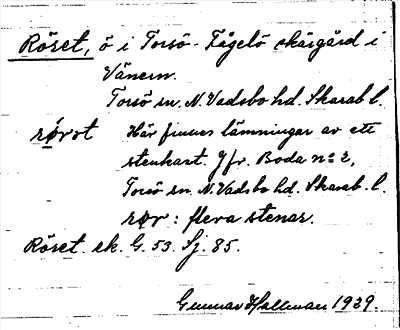 Röset, ö i Torsö-Fågelö skärgård i
Vänern.
Torsö sn. N. Vadsbo hd. Skarab. l.
Här finnes lämningar av ett
stenkast. Jfr. Boda no 2,
Torsö sn. N. Vadsbo hd. Skarab. l.
rør: flera stenar.
Röset. ek. G. 53. Sj. 85.
Gunnar Hallman 1929.